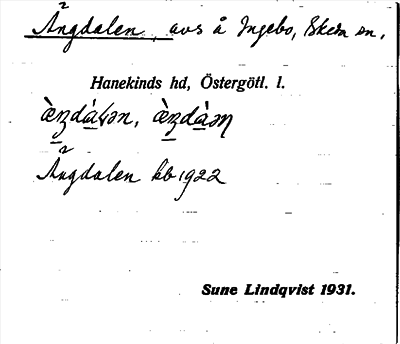 Ängdalen, avs å Ingebo, Skeda sn,
Hanekinds hd, Östergötl. l.
Ängdalen kb 1922
Sune Lindqvist 1931.